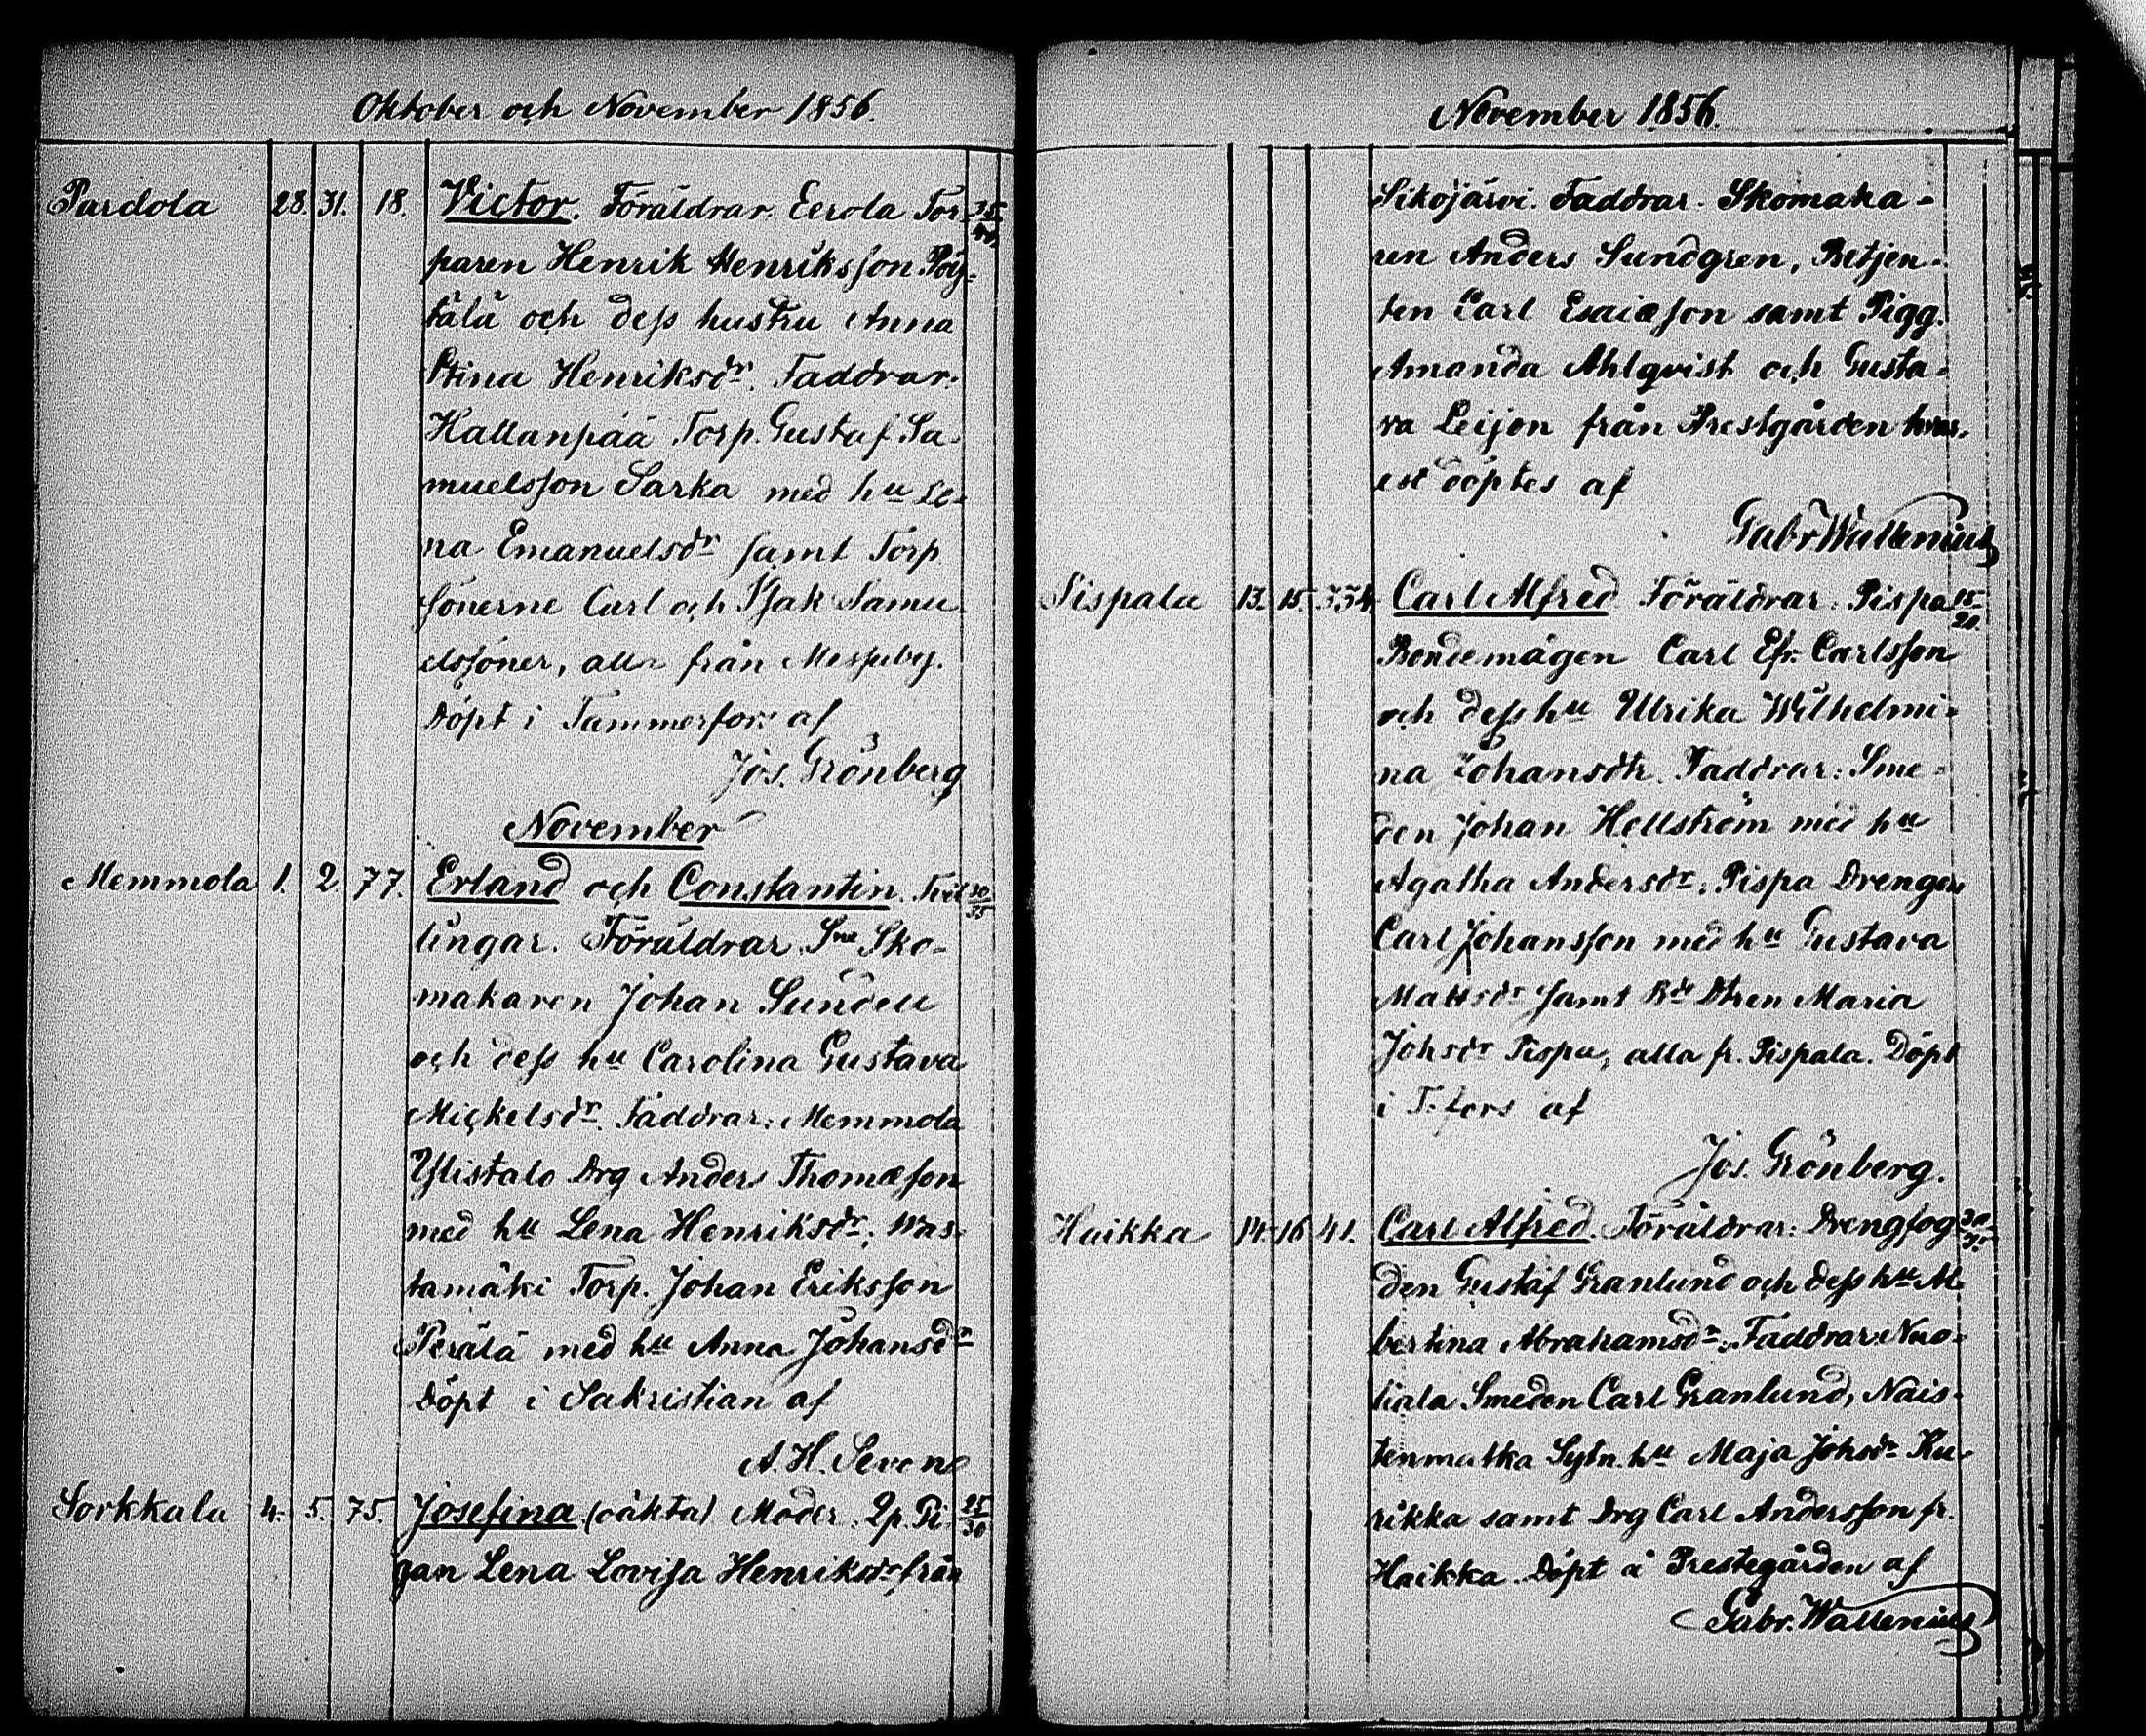 Oktober och November 1856.
Pardola 28. 31. 18. Victor. Föräldrar. Eerola Tor-
paren Henrik Henriksson Pöy-
tälä och dess hustru Anna
Stina Henriksdr. Faddrar.
Hallanpää Torp. Gustaf Sa-
muelsson Sarka med hu Le-
na Emanuelsdr samt Torp
sönerne Carl och Isak Samu-
elssöner, alla från Messuby.
Döpt i Tammerfors af
Jos. Grönberg
November
Memmola 1. 2 77. Erland och Constantin. Tvil 30/35
lingar. Föräldrar. Sne Sko-
makaren Johan Sundell
och dess hu Carolina Gustava
Mickelsdr. Faddrar: Memmola
Ylistalo Drg Anders Thomæson
med hu Lena Henriksdr; Was-
tamäki Torp. Johan Eriksson
Perälä med hu Anna Johansdr
Döpt i Sakristian af
A. H. Sevon
Sorkkala 4. 5. 75. Josefina (oäkta) Moder. Qp. Pi- 25/30
gan Lena Lovisa Henriksdr från
November 1856.
Sikojärvi. Faddrar. Skomaka-
ren Anders Sundgren, Betjen-
ten Carl Esaiæson samt Pigg.
Amanda Ahlqvist och Gusta-
va Leijon från Prestgården hvar-
est döptes af
Gabr Wallenius
Pispala 13. 15. 334. Carl Alfred Föräldrar: Pispa 15/20.
Bondemågen Carl Efr. Carlsson
och dess hu Ulrika Wilhelmi-
na Johansdr. Faddrar: Sme-
den Johan Hellström med hu
Agatha Andersdr; Pispa Drengen
Carl Johansson med hu Gustava
Mattsdr samt Bde Dtren Maria
Johsdr Pispa, alla fr. Pispala. Döpt
i T.fors af
Jos. Grönberg.
Haikka 14. 16 41. Carl Alfred. Föräldrar: Drengfog-
den Gustaf Granlund och dess hu Al-
bertina Abrahamsdr; Faddrar: Nuo-
liala Smeden Carl Granlund, Nais-
tenmatka Sytn. hu Maja Johsdr Ku-
rikka samt Drg Carl Andersson fr.
Haikka. Döpt å Prestegården af
Gabr. Wallenius